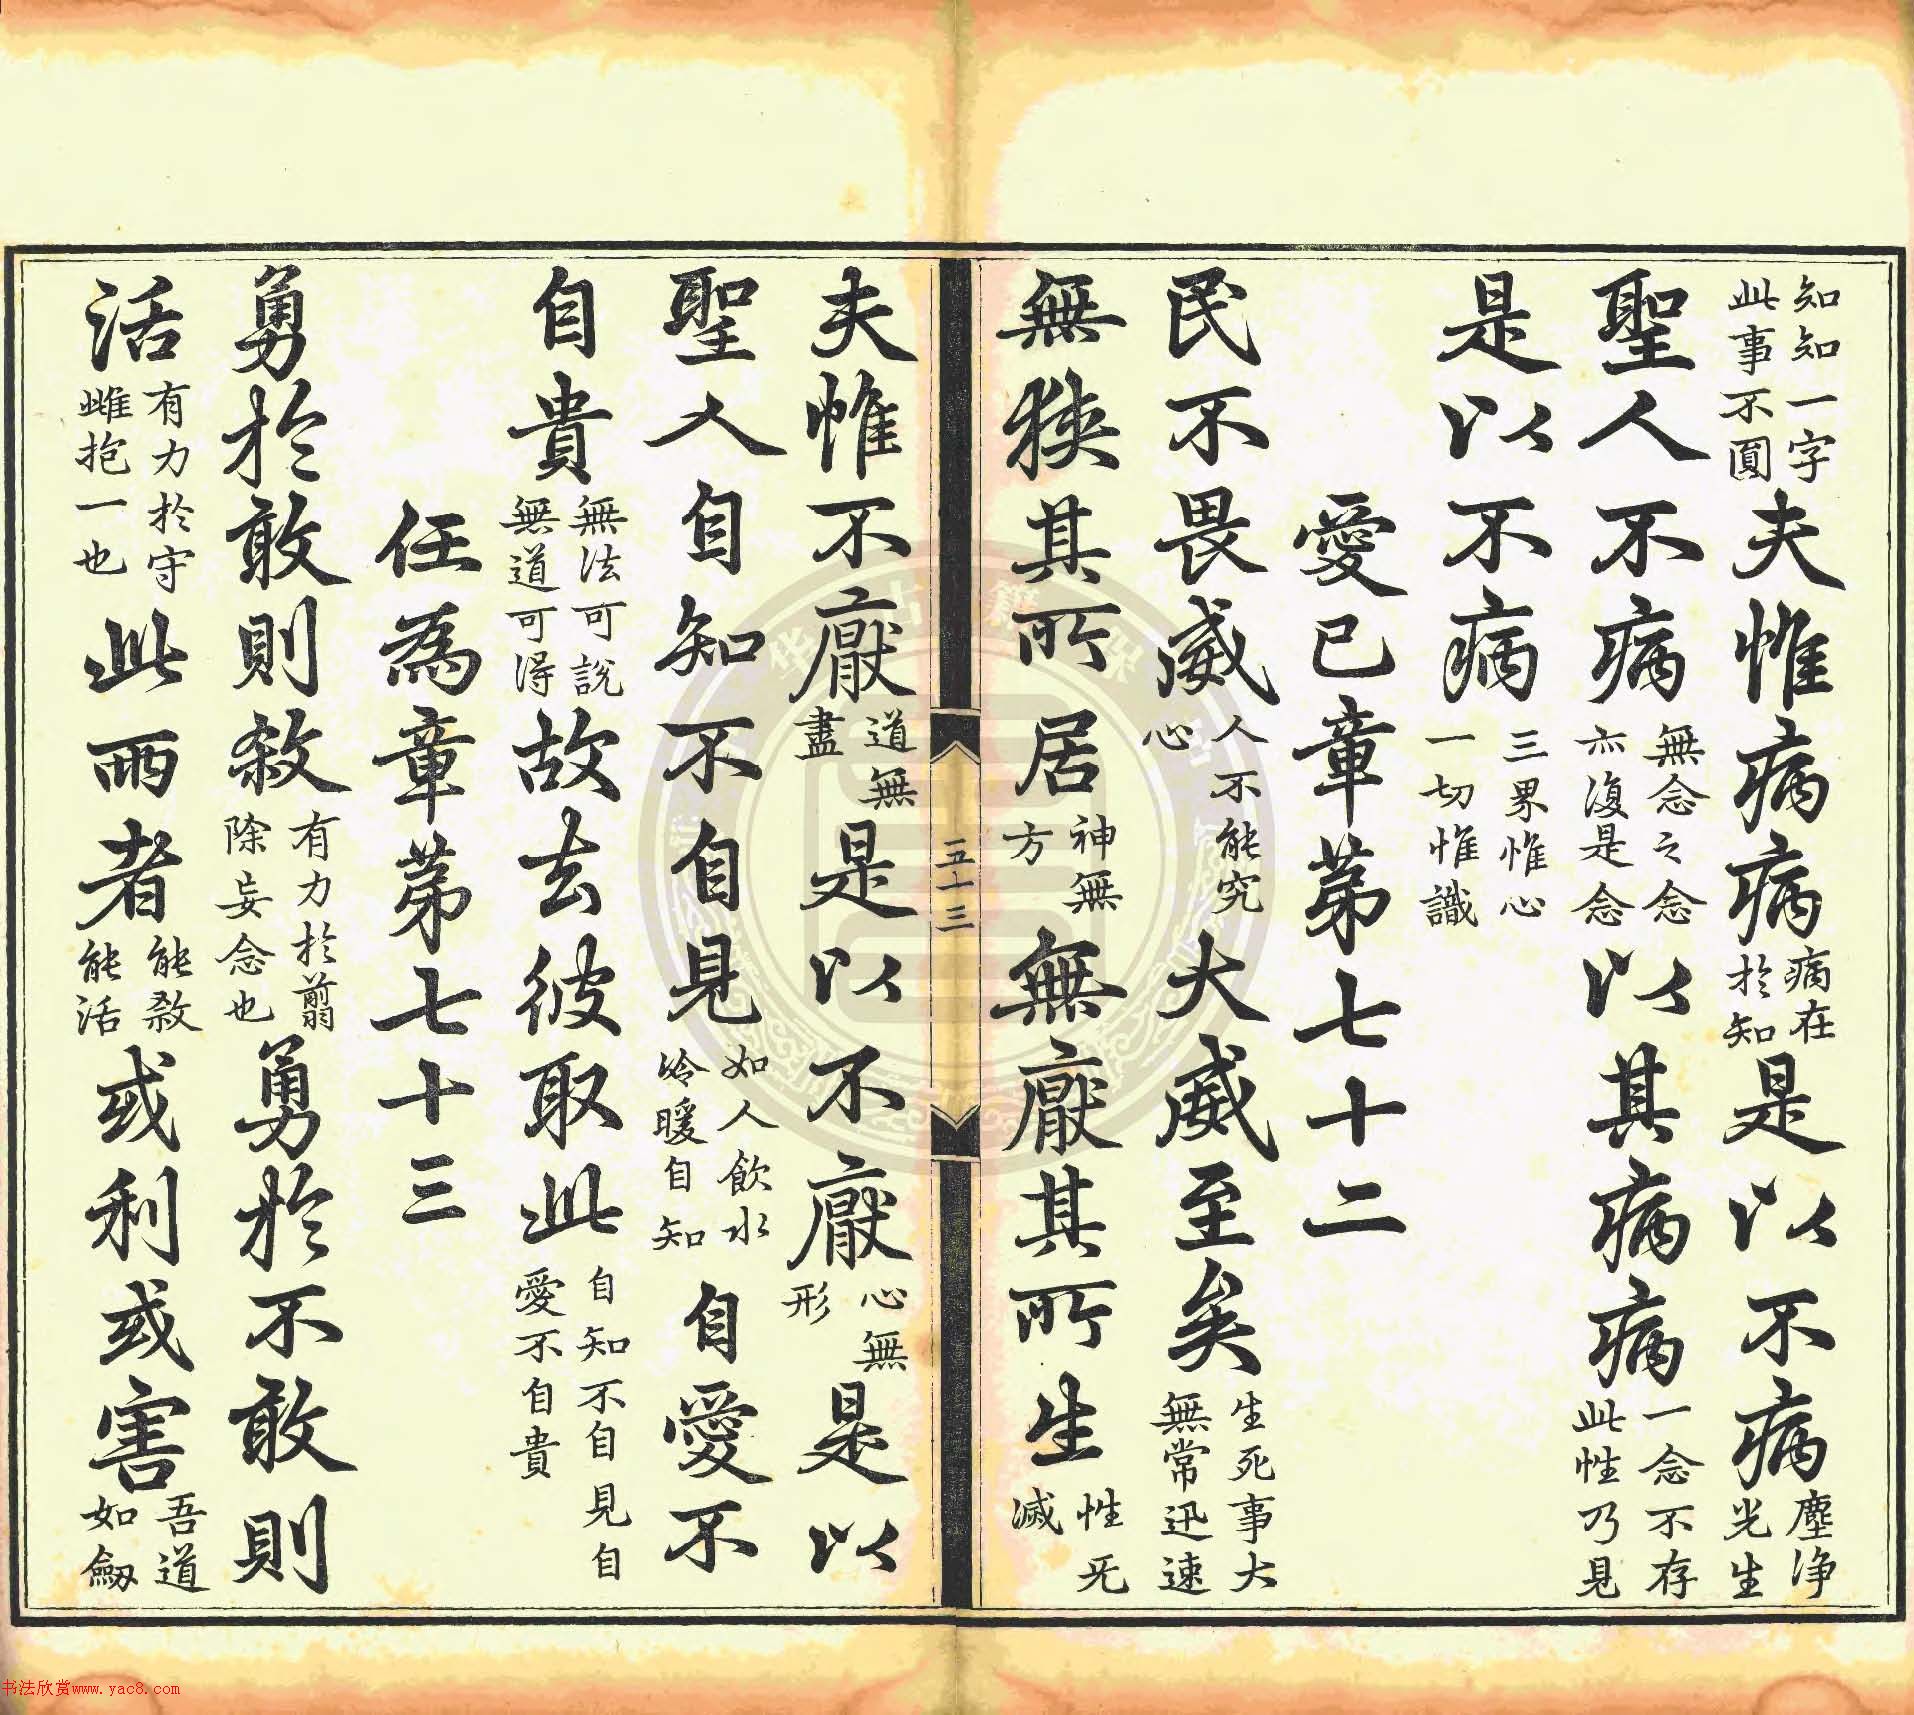 知知一字此事不圓夫惟病病病在於知是以不病塵淨光生
聖人不病無念之念亦復是念以其病病一念不存此性乃見
是以不病三界惟心一切惟識
愛已章第七十二
民不畏威人不能究心大威至矣生死事大無常迅速
無狹其所居神無方無厭其所生性无滅
五十三
夫惟不厭道無盡是以不厭心無形是以
聖人自知不自見如人飲水冷暖自知自愛不
自貴無法可說無道可得故去彼取此自知不自見自愛不自貴
任為章第七十三
勇於敢則殺有力於翦除妄念也勇於不敢則
活有力於守雌抱一也此兩者能殺能活或利或害吾道如劔
书法欣赏www.yac8.com